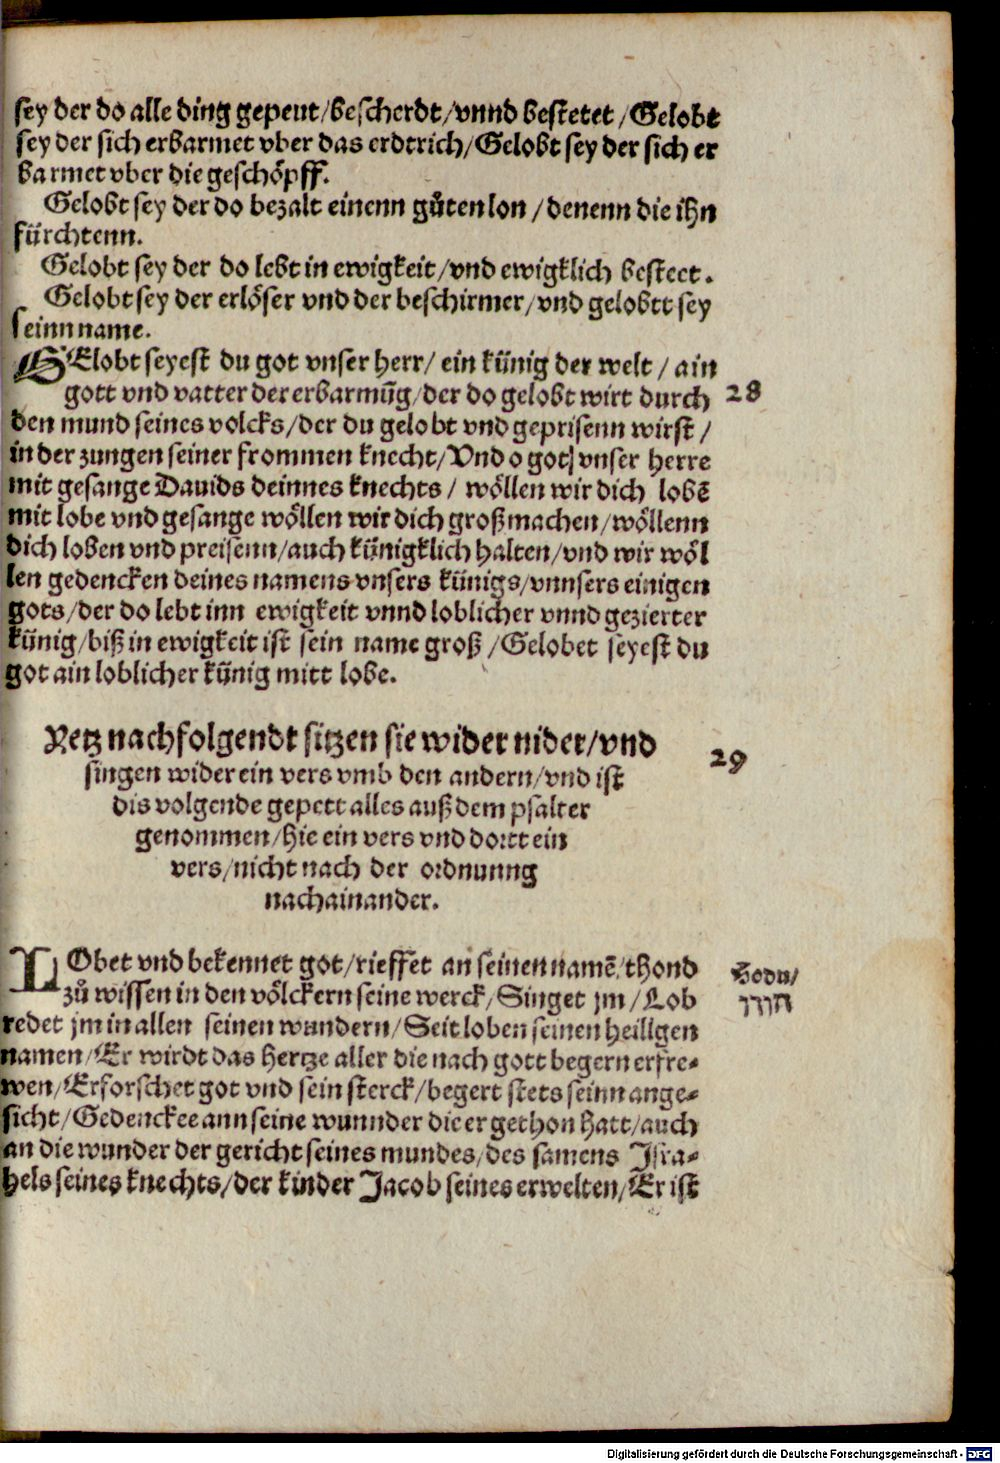 sey der do alle ding gepeut/bescherdt/vnnd bestetet/Gelobt
sey der sich erbarmet vber das erdtrich/Gelobt sey der sich er
barmet vber die geschöpff.
Gelobt sey der do bezalt einenn gůten lon/denenn die ihn
fürchtenn.
Gelobt sey der do lebt in ewigkeit/vnd ewigklich besteet.
Gelobt sey der erlöser vnd der beschirmer/vnd gelobtt sey
seinn name.
GElobt seyest du got vnser herr/ein künig der welt/ain
gott vnd vatter der erbarmūg/der do gelobt wirt durch 28
den mund seines volcks/der du gelobt vnd geprisenn wirst/
in der zungen seiner frommen knecht/Vnd o got vnser herre
mit gesange Dauids deinnes knechts/wöllen wir dich lobē
mit lobe vnd gesange wöllen wir dich großmachen/wöllenn
dich loben vnd preisenn/auch künigklich halten/vnd wir wöl
len gedencken deines namens vnsers künigs/vnnsers einigen
gots/der do lebt inn ewigkeit vnnd loblicher vnnd gezierter
künig/biß in ewigkeit ist sein name groß/Gelobet seyest du
got ain loblicher künig mitt lobe.
Yetz nachfolgendt sitzen sie wider nider/vnd 29
singen wider ein vers vmb den andern/vnd ist
dis volgende gepett alles auß dem psalter
genommen/hie ein vers vnd dortt ein
vers/nicht nach der ordnunng
nachainander.
LObet vnd bekennet got/rieffet an seinen namē/thond Hodu/
zů wissen in den völckern seine werck/Singet jm/Lob הודו
redet jm in allen seinen wundern/Seit loben seinen heiligen
namen/Er wirdt das hertze aller die nach gott begern erfre-
wen/Erforschet got vnd sein sterck/begert stets seinn ange-
sicht/Gedenckee ann seine wunnder die er gethon hatt/auch
an die wunder der gericht seines mundes/des samens Jsra-
hels seines knechts/der kinder Jacob seines erwelten/Er ist
Digitalisierung gefördert durch die Deutsche Forschungsgemeinschaft - DFG